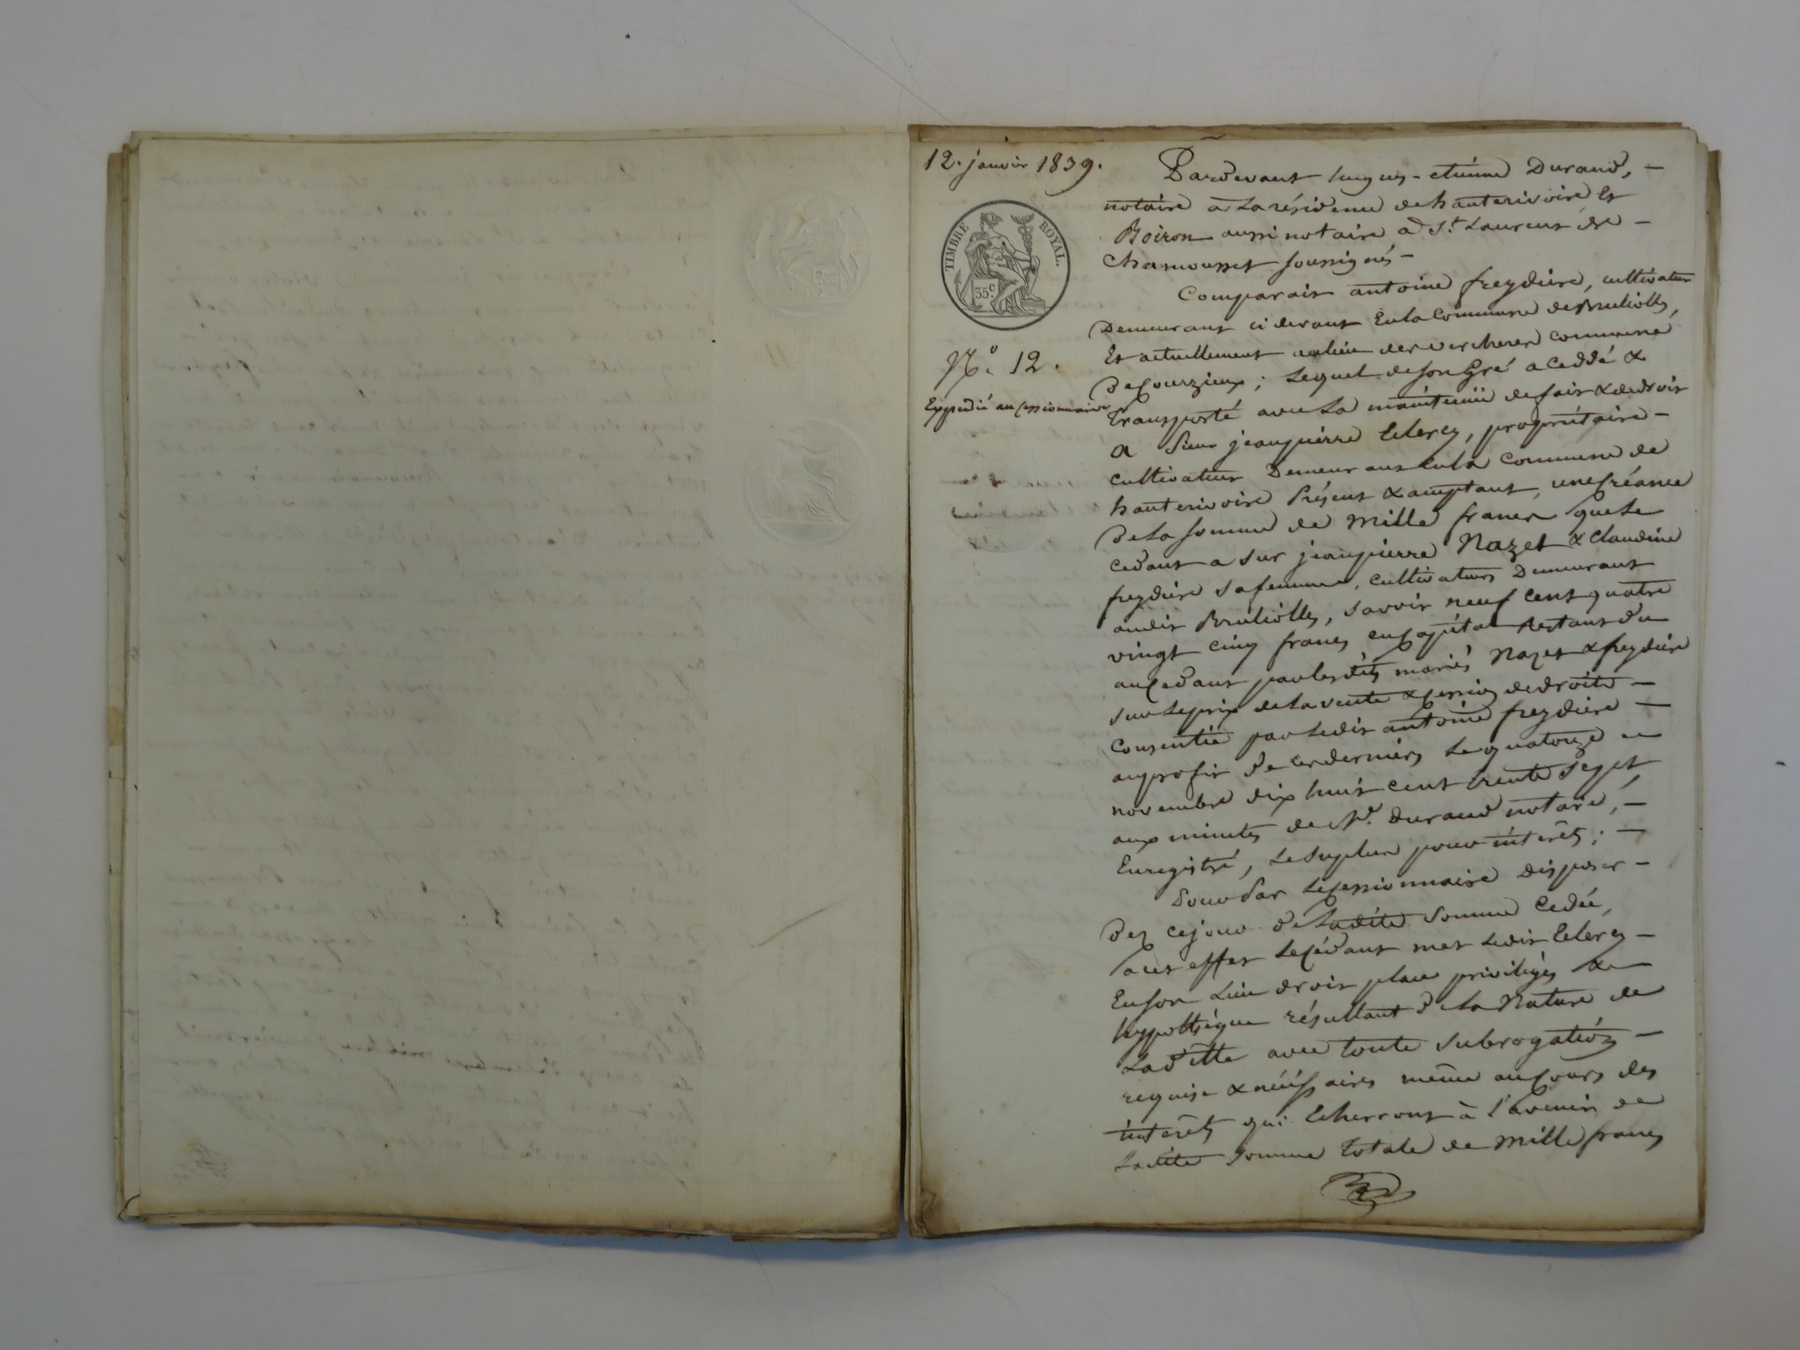 12. janvier 1839.
TIMBRE ROYAL.
35 c.
N.° 12.
Expedié au cessionnaire
Pardevant hugues-etienne Durand, -
notaire à la résidence de hauterivoire Et
Boiron aussi notaire à S.t Laurent de -
Chamousset soussignés -
Comparait antoine freydiere, cultivateur
Demeurant ci devant En la Commune de Brullioles,
Et actuellement au lieu des verchères commune
De Courzieux; Lequel de son Gré a Ceddé &
transporté avec La maintenüe de fait & de droit
A Sieur jeanpierre Leclerq, propriétaire -
Cultivateur Demeurant En la Commune de
hauterivoire Présent & acceptant, une Créance
De La somme de Mille francs que Le
Cedant a sur jeanpierre Nazet & Claudine
freydiere sa femme, cultivateurs Demeurant
audit Brullioles, savoir neuf cent quatre
vingt cinq francs en Capital Restant du
au Cedant par lesdits mariés Nazet & freydiere
sur Le prix de La vente & Cession de droits -
Consentie par Ledit antoine freydiere -
au profit de ces derniers Le quatorze
novembre dix huit cent trente Sept,
aux minutes de M.e Durand notaire, -
Enregistré, Le surplus pour intérêts; -
Pour Par Le Cessionnaire disposer -
Dez ce jour de Ladite Somme Cedée,
a cet effet Le Cédant met Ledit Leclerq -
En son Lieu droit place privilèges &
hyppothèque résultant de La Nature de
La dette avec toute subrogation -
requise & nécéssaires même au Cours des
intérêts qui Echerront à l'avenir de
Ladite Somme totale de Mille francs